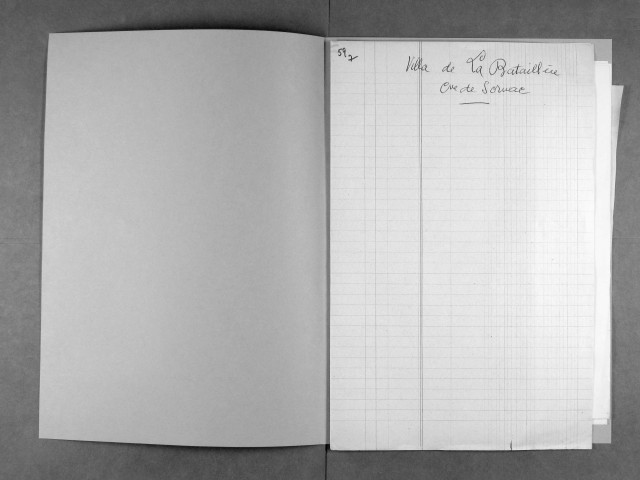 59
Villa de La Bataillère
de Sornac